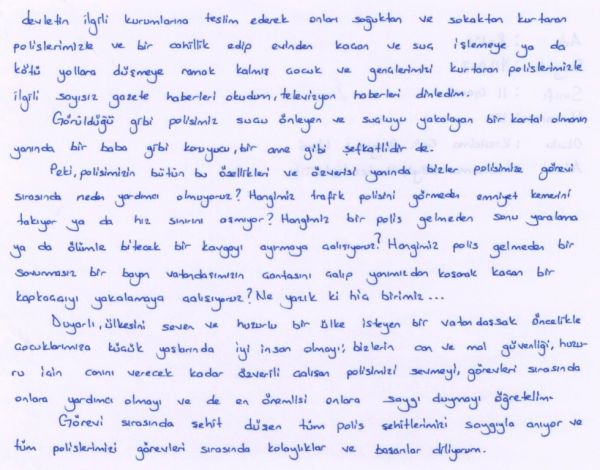 devletin ilgili kurumlarına teslim ederek onları soğuktan ve sokaktan kurtaran
polislerimizle ve bir cahillik edip evinden kaçan ve suç işlemeye ya da
kötü yollara düşmeye ramak kalmış çocuk ve gençlerimizi kurtaran polislerimizle
ilgili sayısız gazete haberleri okudum, televizyon haberleri dinledim.
Görüldüğü gibi polisimiz suçu önleyen ve suçluyu yakalayan bir kartal olmanın
yanında bir baba gibi koruyucu, bir anne gibi şefkatlidir de.
Peki, polisimizin bütün bu özellikleri ve özverisi yanında bizler polisimize görevi
sırasında neden yardımcı olmuyoruz? Hangimiz trafik polisini görmeden emniyet kemerini
takıyor ya da hız sınırını aşmıyor? Hangimiz bir polis gelmeden sonu yaralama
ya da ölümle bitecek bir kavgayı ayırmaya çalışıyoruz? Hangimiz polis gelmeden bir
savunmasız bir bayan vatandaşımızın çantasını çalıp yanımızdan koşarak kaçan bir
kapkaççıyı yakalamaya çalışıyoruz? Ne yazık ki hiç birimiz...
Duyarlı, ülkesini seven ve huzurlu bir ülke isteyen bir vatandaşsak öncelikle
çocuklarımıza küçük yaşlarında iyi insan olmayı; bizlerin can ve mal güvenliği, huzu-
ru için canını verecek kadar özverili çalışan polisimizi sevmeyi, görevleri sırasında
onlara yardımcı olmayı ve de en önemlisi onlara saygı duymayı öğretelim.
Görevi sırasında şehit düşen tüm polis şehitlerimizi saygıyla anıyor ve
tüm polislerimizi görevleri sırasında kolaylıklar ve başarılar diliyorum.